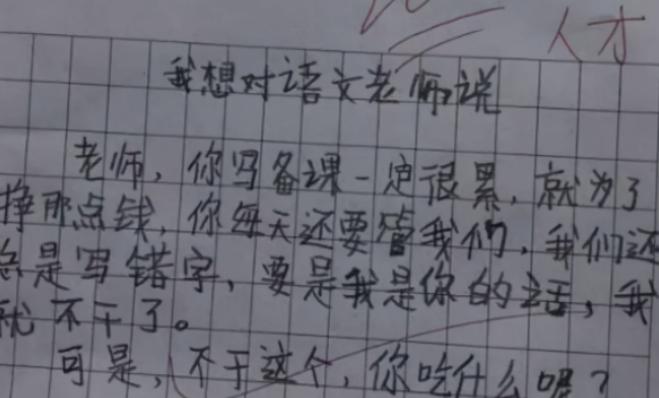 人才
我想对语文老师说
老师，你写备课一定很累，就为了
挣那点钱，你每天还要管我们，我们还
总是写错字，要是我是你的话，我
就不干了。
可是，不干这个，你吃什么呢？